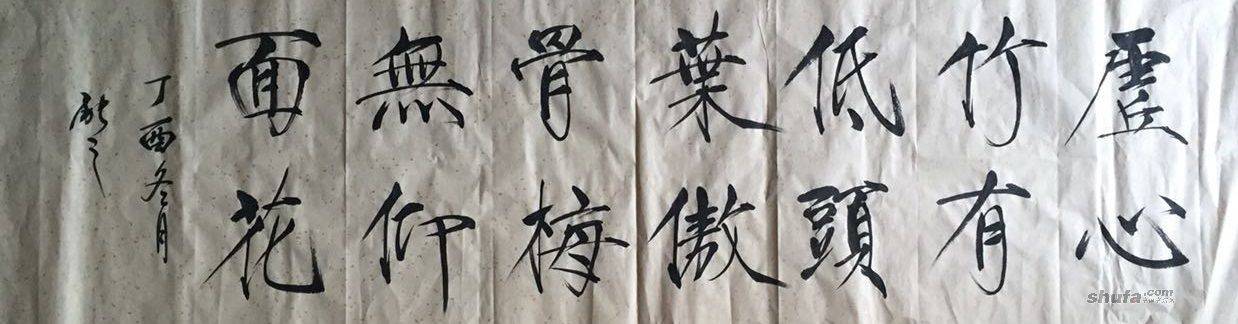 虛心
竹有
低頭
葉傲
骨梅
無仰
面花
丁酉冬月
shufa.com